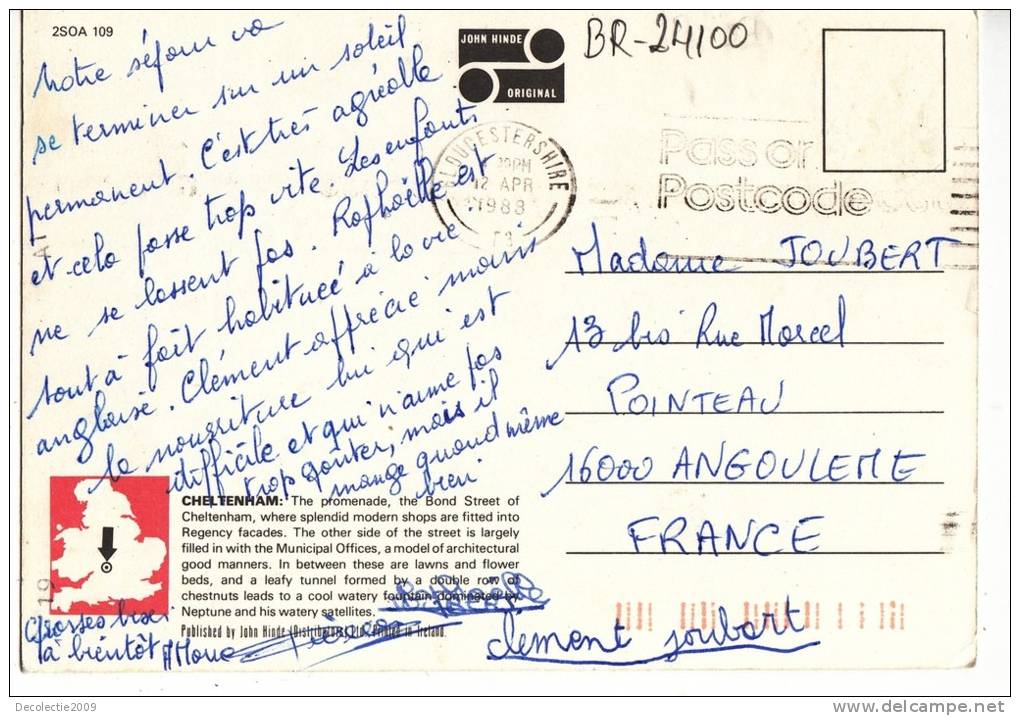 2SOA 109
JOHN HINDE
ORIGINAL
BR-24100
GLOUCESTERSHIRE
30PM
12 APR
1988
Pass on
Postcode
Notre séjour va
se terminer sur un soleil
permanent. C'est très agréable
et cela passe trop vite. Les enfants
ne se lassent pas. Raphaëlle est
tout à fait habituée à la vie
anglaise. Clément apprécie moins
la nourriture lui qui est
difficile et qui n'aime pas
trop goûter, mais il
mange quand même
bien.
Madame JOUBERT
13 bis Rue Marcel
POINTEAU
16000 ANGOULEME
FRANCE
CHELTENHAM: The promenade, the Bond Street of
Cheltenham, where splendid modern shops are fitted into
Regency facades. The other side of the street is largely
filled in with the Municipal Offices, a model of architectural
good manners. In between these are lawns and flower
beds, and a leafy tunnel formed by a double row of
chestnuts leads to a cool watery fountain dominated by
Neptune and his watery satellites.
Published by John Hinde (Distributors) Ltd. Printed in Ireland.
Grosses bises
à bientôt
clément joubert
Decolectie2009
www.delcampe.net